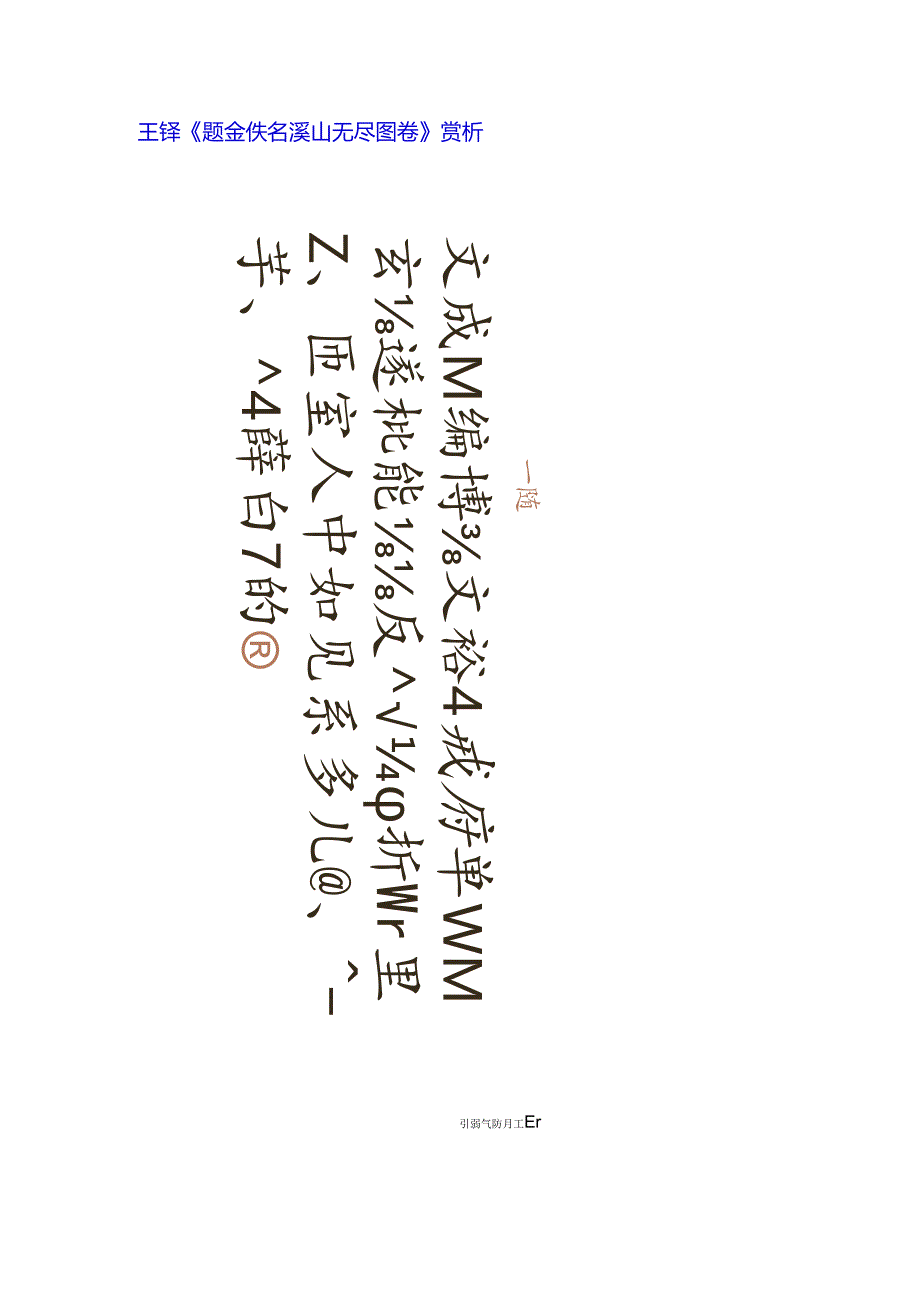 王铎《题金佚名溪山无尽图卷》赏析
一随
文成M编博⅜文裕4戒府单WM
玄⅛遂枇能⅛⅛反^√¼φ折Wr里
Z、匝室人中如见系多儿@、^_
芋、^4薛白7的®
引弱气防月工Er